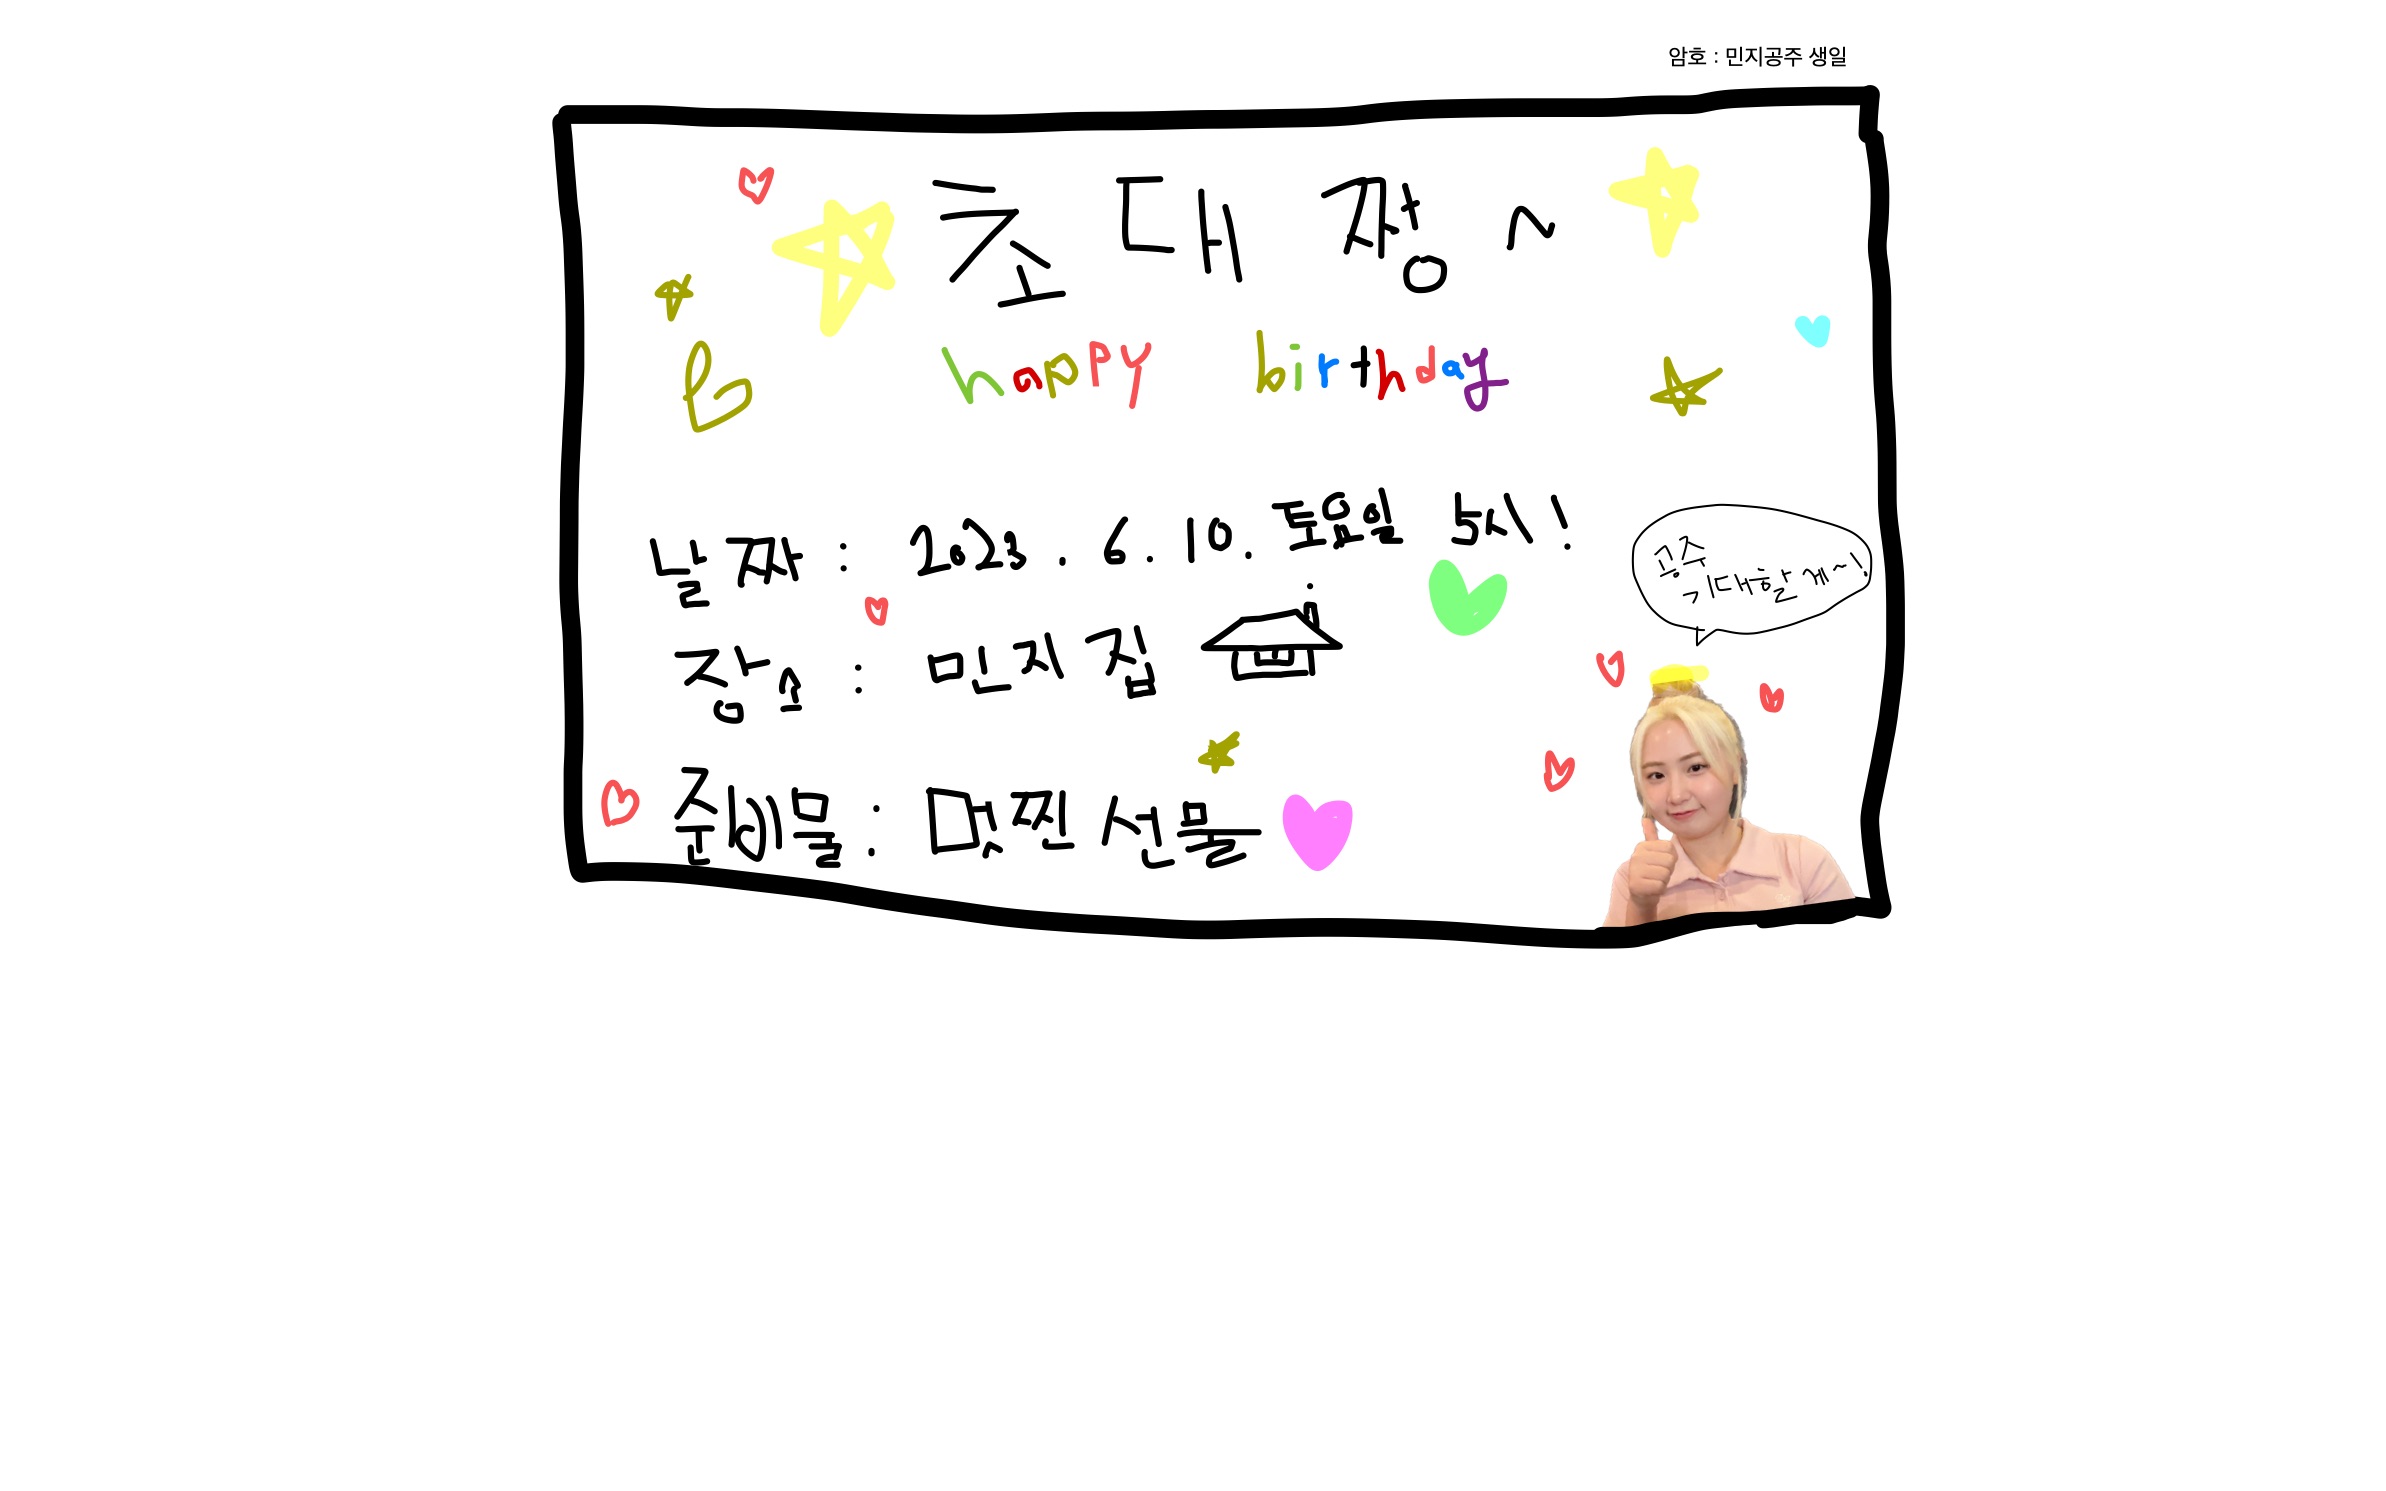 암호 : 민지공주 생일
초대장~
happy birthday
날짜 : 2023. 6. 10. 토요일 5시!
장소 : 민지 집
준비물 : 멋찐 선물
공주
기대할게~!